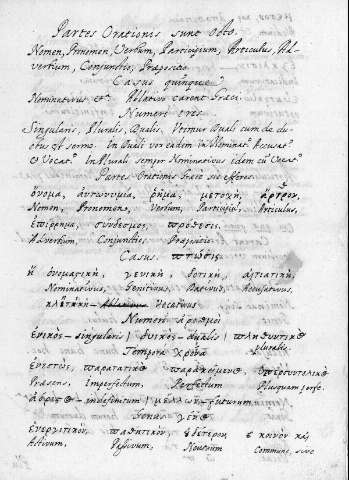 Partes Orationis sunt Octo.
Nomen, Pronomen, Verbum, Participium, Articulus, Ad-
verbium, Conjunctio, Præpositio
Casus quinque
Nominativus &c. Ablativo carent Græci.
Numeri tres
Singularis, Pluralis, Dualis, Utimur Duali cum de du-
obus est sermo. In Duali vox eadem in Nominat. Accusat.
& Vocat. In Plurali semper Nominativus idem cum Vocat.
Partes Orationis Græce sic efferes
ὄνομα, ἀντωνυμία, ῥῆμα, μετοχή, ἄρθρον,
Nomen, Pronomen, Verbum, Participium, Articulus,
ἐπίρρημα, σύνδεσμος, πρόθεσις.
Adverbium, Conjunctio, Præpositio
Casus. πτώσις
ἡ ὀνομαστική, γενική, δοτική, αἰτιατική,
Nominativus, Genitivus, Dativus, Accusativus,
κλητική - Vocativus
Numeri ἀριθμοί
ἑνικός - singularis / δυϊκός - dualis / πληθυντικὸς
pluralis.
Tempora χρόνοι
ἐνεστώς, παρατατικὸς παρακείμενος, ὑπερσυντελικὸς
Præsens, Imperfectum, Perfectum Plusquam perfe.
ἀόριστος - indefinitum / μέλλων - futurum
Genus γένος
ἐνεργητικόν, παθητικόν, οὐδέτερον, κοινόν καὶ
Activum, Passivum, Neutrum Commune, sive